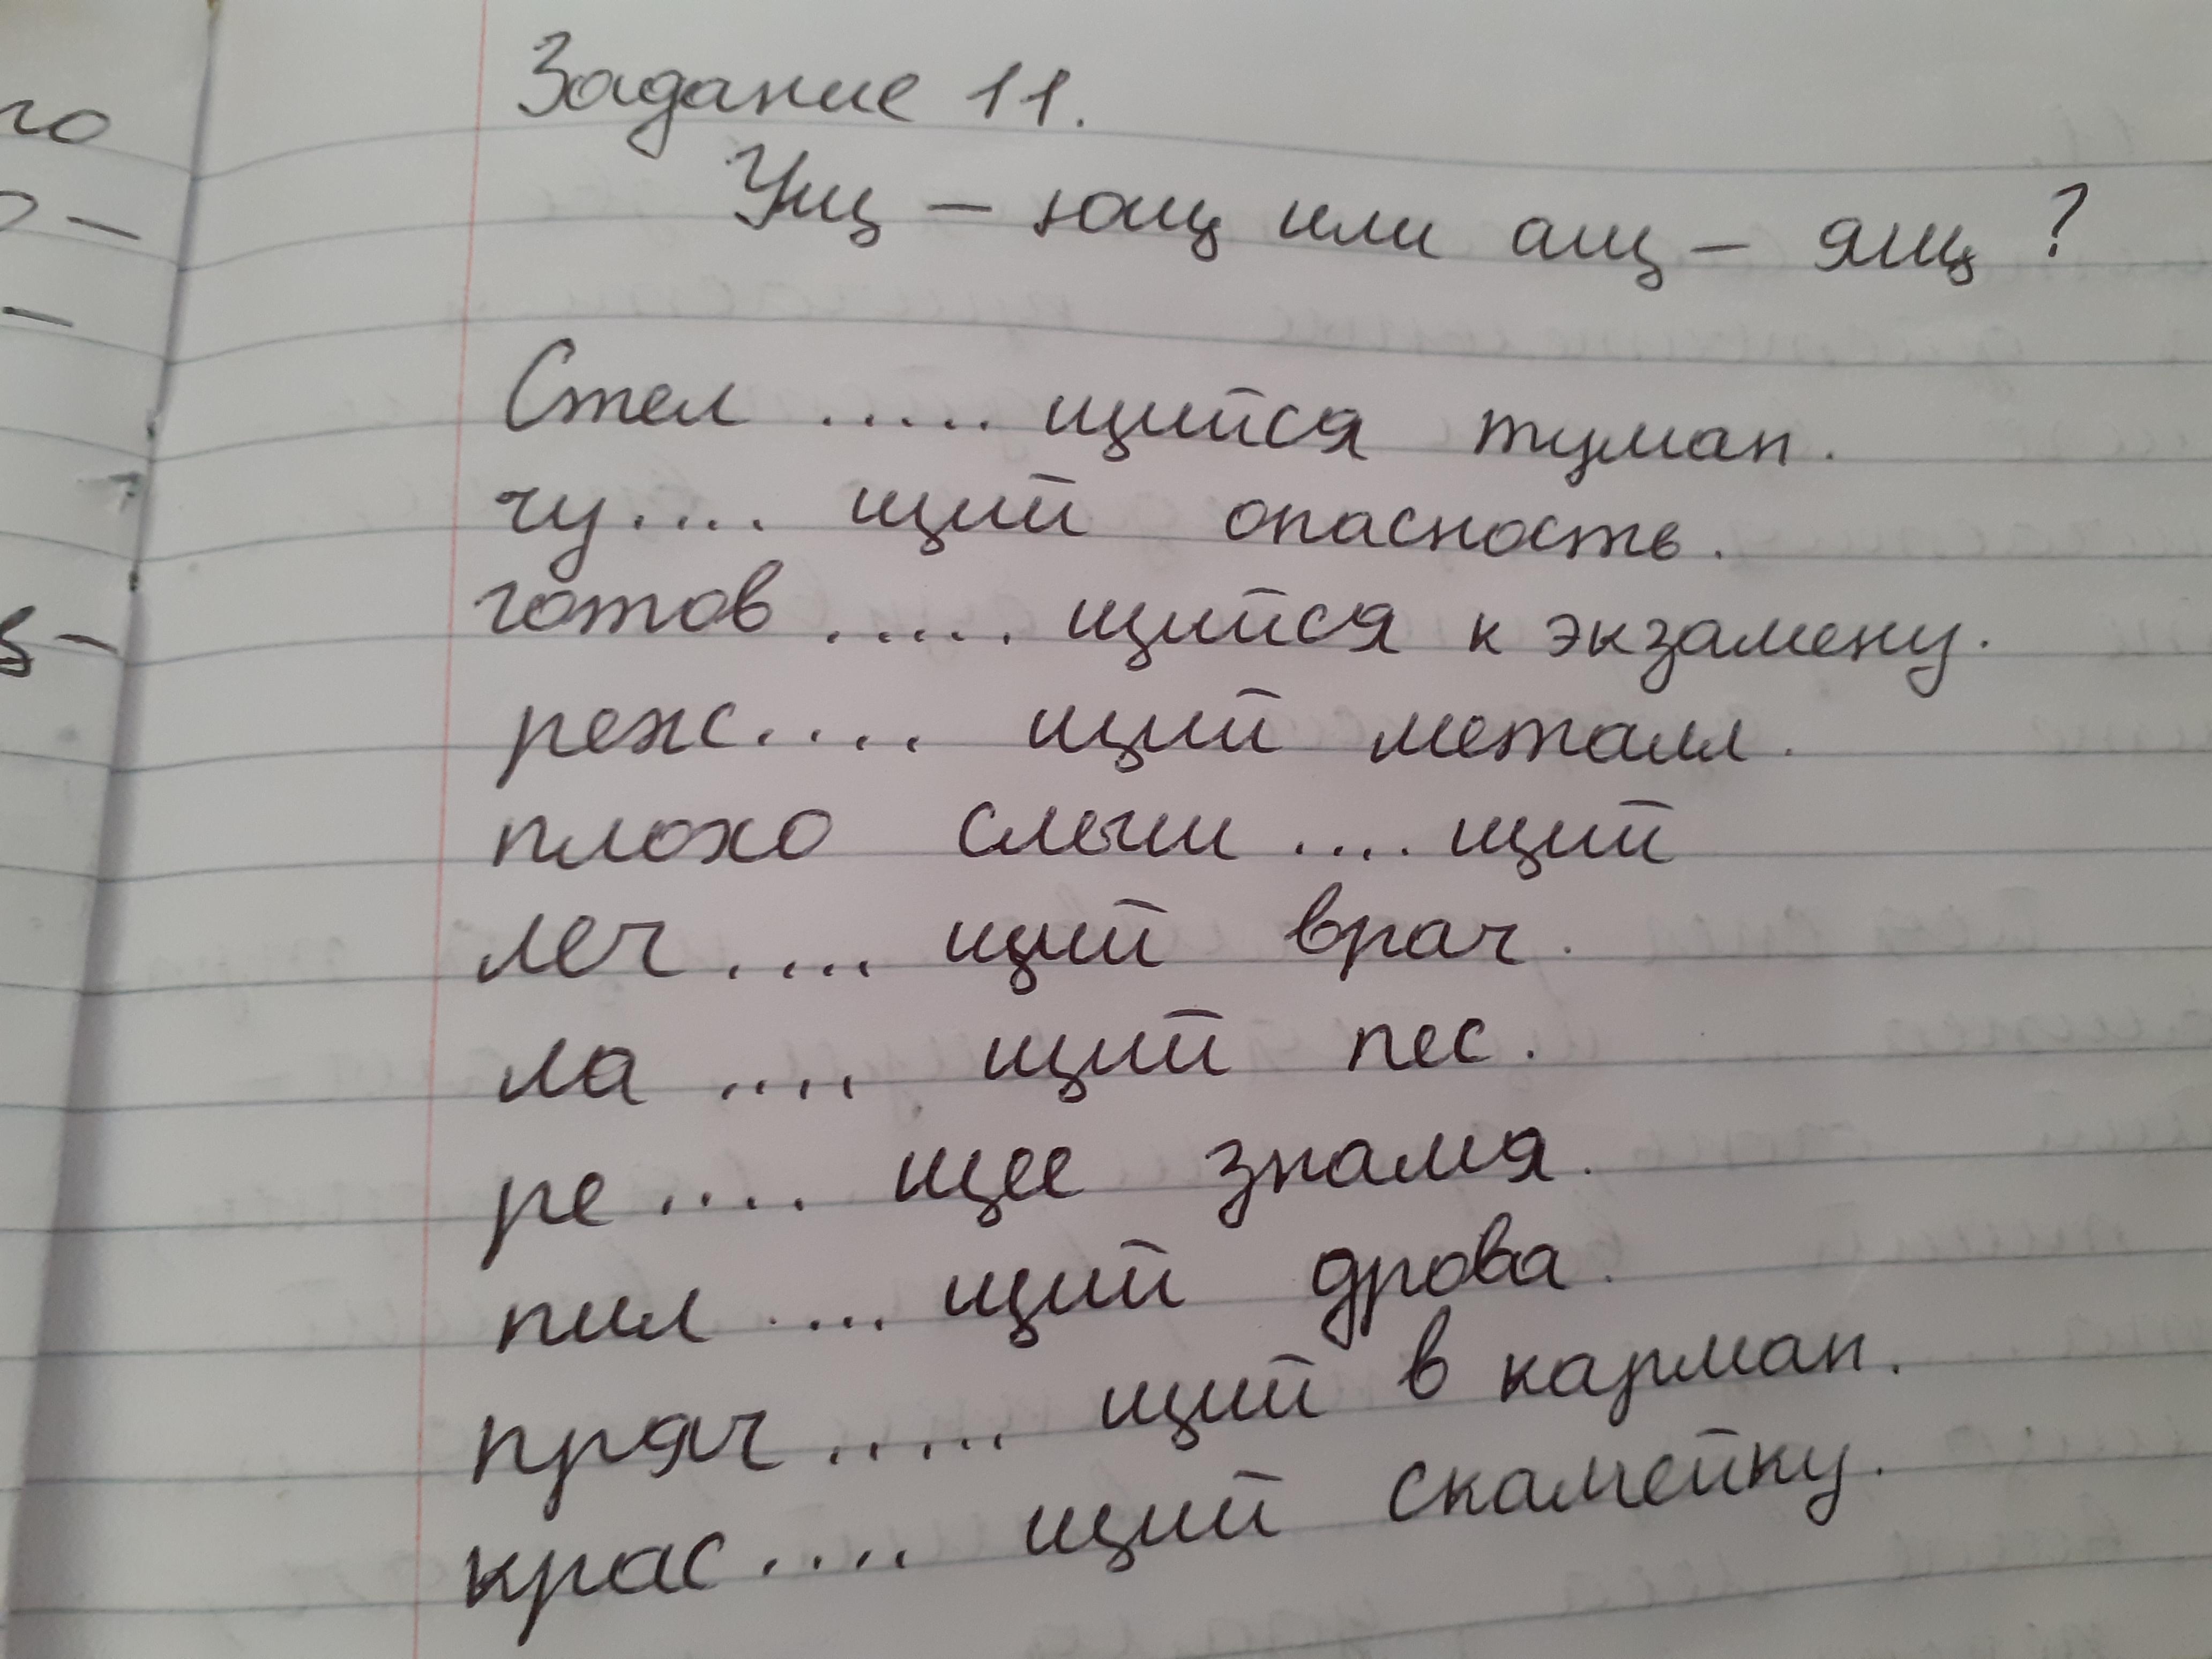 Задание 11.
Ущ – ющ или ащ – ящ ?
Стел ..... щийся туман.
чу .... щий опасность.
готов ..... щийся к экзамену.
реж .... щий металл.
плохо слыш .... щий
леч .... щий врач.
ла .... щий пес.
ре .... щее знамя.
пил .... щий дрова.
пряч ..... щий в карман.
крас .... щий скамейку.